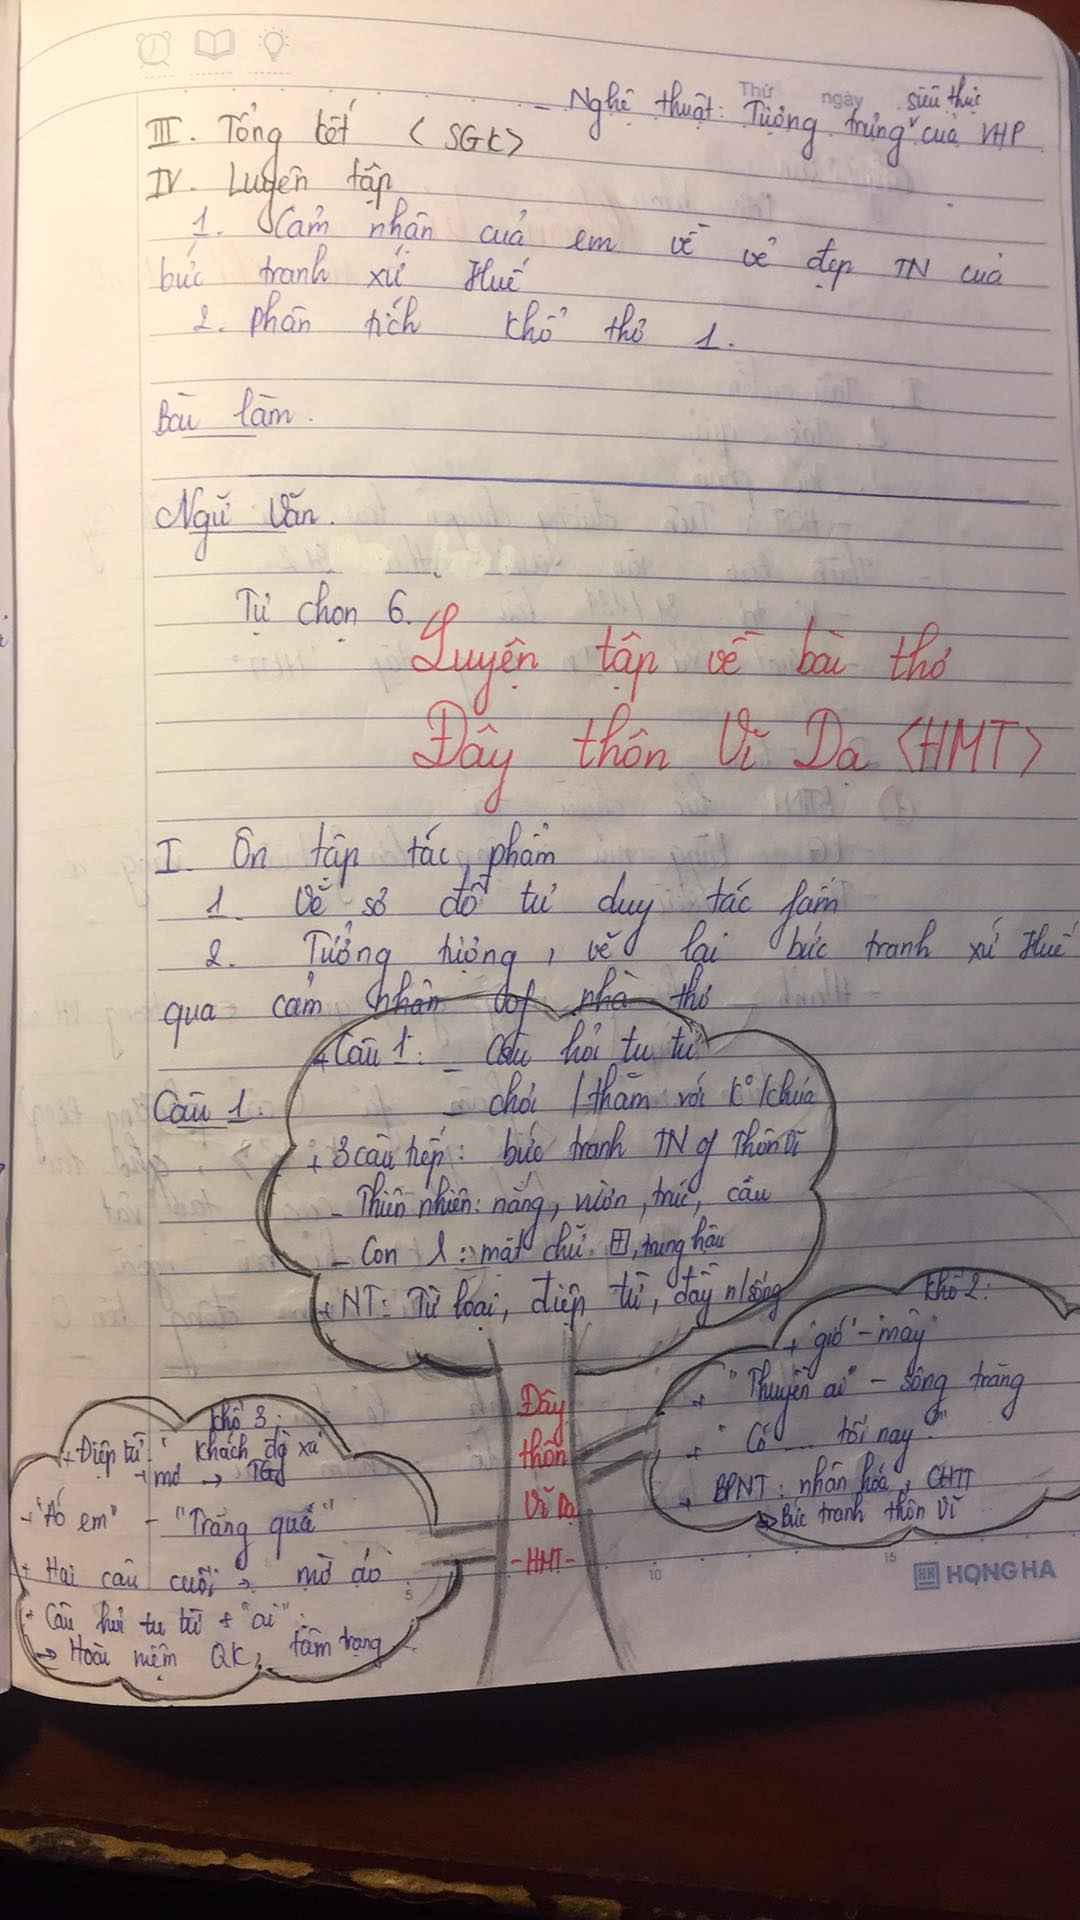 Thứ ngày
- Nghệ thuật: Tượng trưng siêu thực của VHP
III. Tổng kết <SGK>
IV. Luyện tập
1. Cảm nhận của em về vẻ đẹp TN của
bức tranh xứ Huế
2. phân tích khổ thơ 1.
Bài làm.
Ngữ Văn.
Tự chọn 6.
Luyện tập về bài thơ
Đây thôn Vĩ Dạ <HMT>
I. Ôn tập tác phẩm
1. Vẽ sơ đồ tư duy tác fẩm
2. Tưởng tượng, vẽ lại bức tranh xứ Huế
qua cảm nhận of nhà thơ
Câu 1.
+ Câu 1: - Câu hỏi tu từ
- chơi / thăm với
+ 3 câu tiếp: bức tranh TN of Thôn Vĩ
- Thiên nhiên: nắng, vườn, trúc, cau
- Con : mặt chữ 田, trung hậu
+ NT: Từ loại, điệp từ, đầy n/sống
Khổ 2:
+ "gió - mây"
+ "Thuyền ai" - sông trăng
+ "Có ... tối nay?"
+ BPNT: nhân hóa, CHTT
→ Bức tranh thôn Vĩ
Khổ 3:
+ Điệp từ: "Khách đg xa"
+ mơ →
+ "Áo em" - "Trắng quá"
+ Hai câu cuối → mờ ảo
+ Câu hỏi tu từ + "ai"
→ Hoài niệm QK, tâm trạng
Đây
thôn
Vĩ Dạ
- HMT -
5 10 15
HH HONG HA